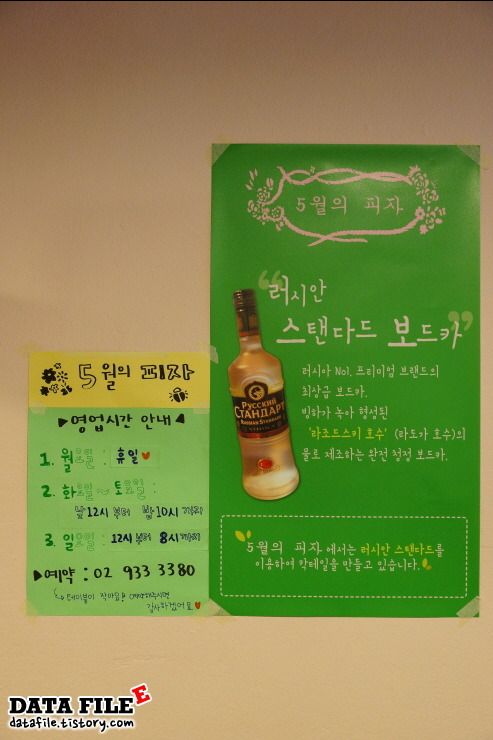 5월의 피자
“러시안
스탠다드 보드카”
러시아 No1. 프리미엄 브랜드의
최상급 보드카.
빙하가 녹아 형성된
'라조드스키 호수' (라도가 호수)의
물로 제조하는 완전 청정 보드카.
РУССКИЙ
СТАНДАРТ
RUSSIAN STANDARD
5월의 피자에서는 러시안 스탠다드를
이용하여 칵테일을 만들고 있습니다.
5월의 피자
▶영업시간 안내◀
1. 월요일 : 휴일♥
2. 화요일 ~ 토요일 :
낮 12시 부터 밤 10시 까지
3. 일요일 : 12시 부터 8시 까지
▶예약 : 02 933 3380
테이블이 작아요! 예약해주시면
감사하겠어요♥
DATA FILE E
datafile.tistory.com